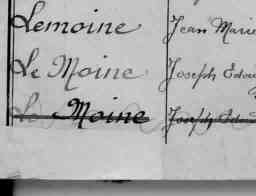 Lemoine Jean Marie
Le Moine Joseph Edou
Le Moine Joseph Edou